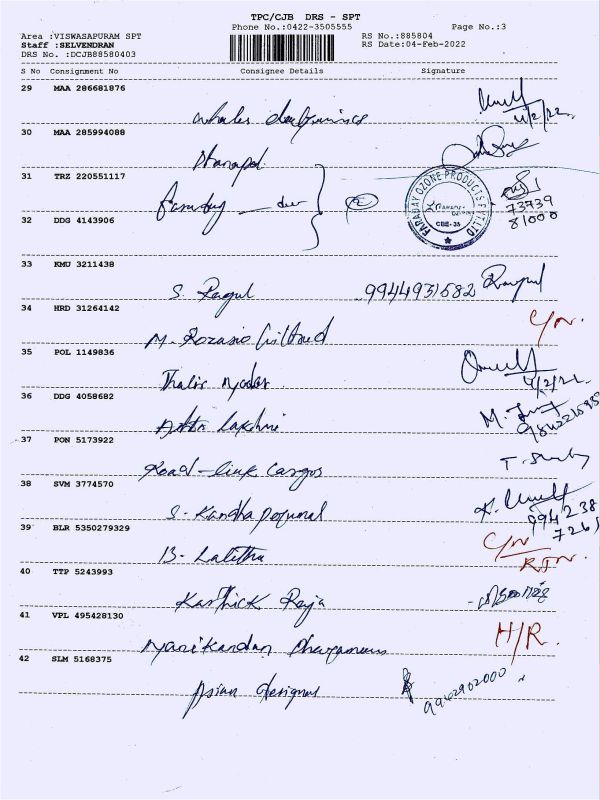 TPC/CJB DRS - SPT
Phone No.:0422-3505555 Page No.:3
Area :VISWASAPURAM SPT RS No :885804
Staff :SELVENDRAN RS Date:04-Feb-2022
DRS No. :DCJB88580403
S No Consignment No Consignee Details Signature
29 MAA 286681876
4/2/22
30 MAA 285994088
Dhanapal
31 TRZ 220551117
FARADAY OZONE PRODUCTS PVT LTD
CBE-35
73739
81000
32 DDG 4143906
33 KMU 3211438
S. Ragul 9944931682
34 HRD 31264142
C/N.
M. Rozario
35 POL 1149836
4/2/22
36 DDG 4058682
Lakshmi
37 PON 5173922
Road-link Cargos
38 SVM 3774570
S. Kandha Perumal
994238
7261
39 BLR 5350279329
C/N
RTN.
B. Lalitha
40 TTP 5243993
Karthick Raja
41 VPL 495428130
H/R.
Manikandan
42 SLM 5168375
Asian designs
9962902000